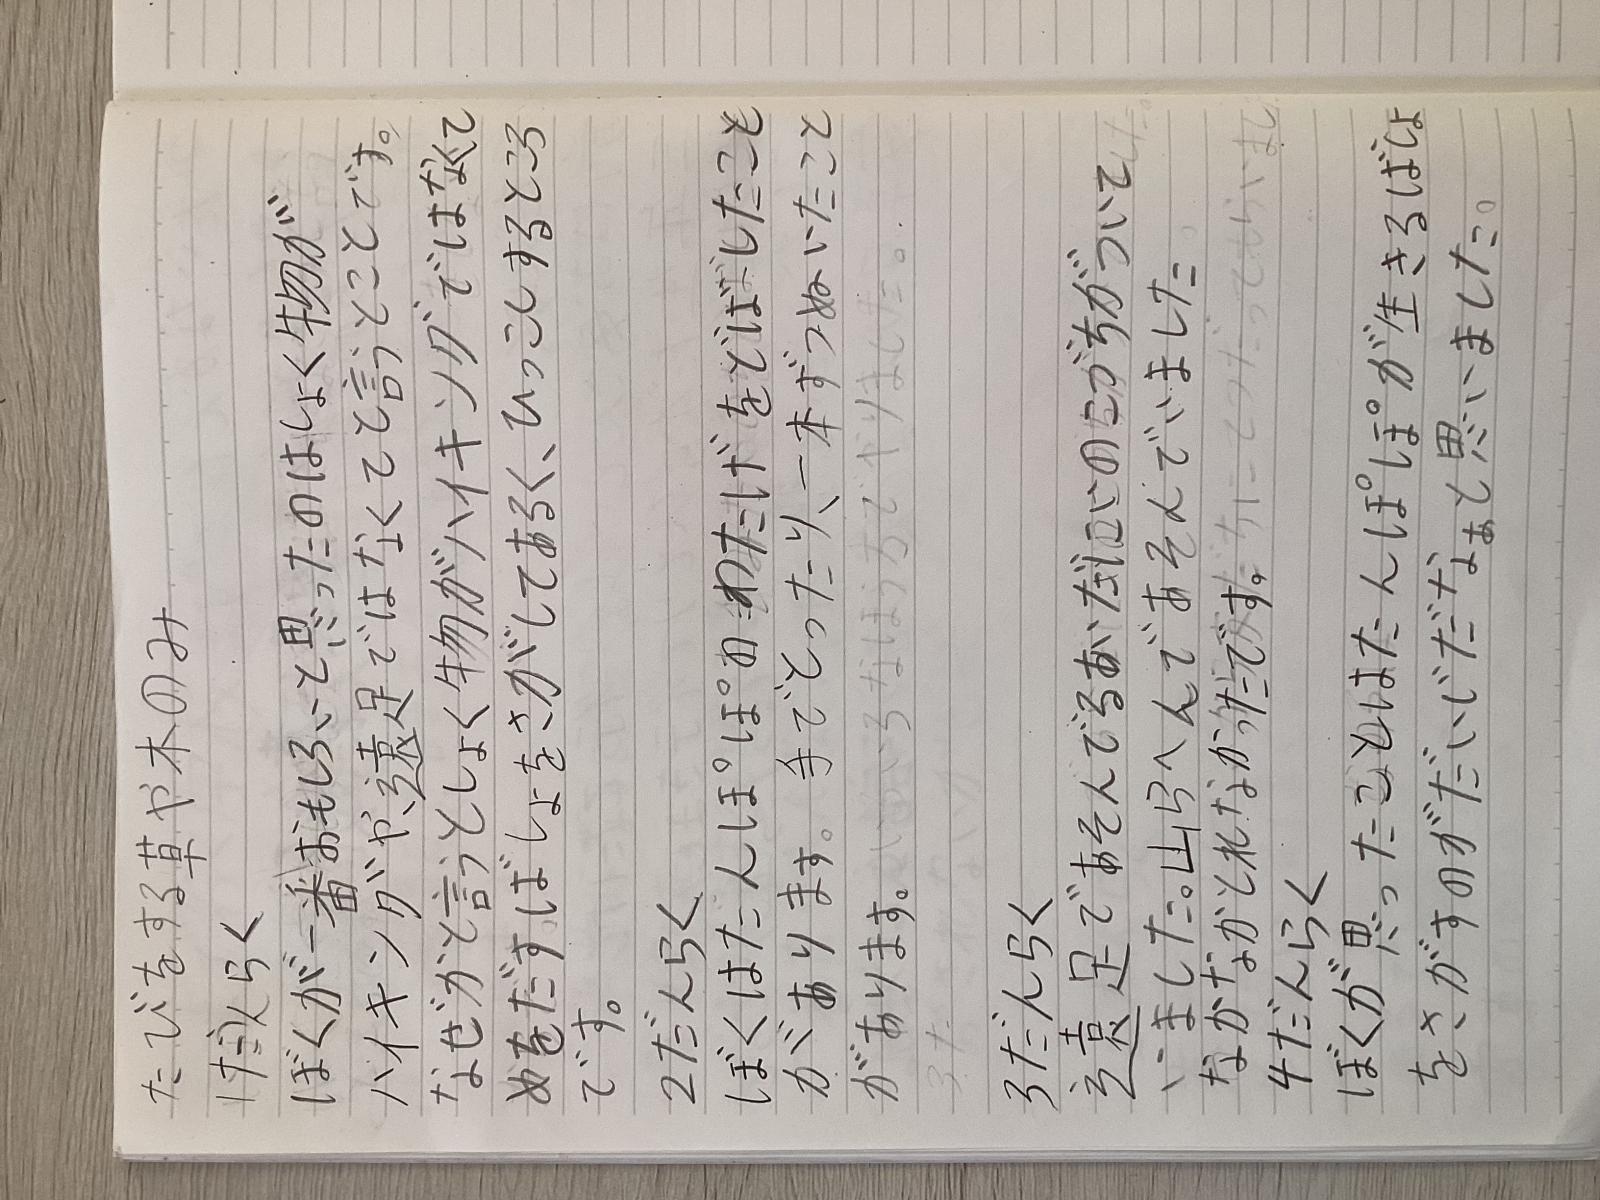 たびをする草や木のみ
1だんらく
ぼくが一番おもしろいと思ったのはしょく物が
ハイキングや、遠足ではなくてと言うとことです。
なぜかと言うとしょく物がハイキングではなくて
めをだすばしょをさがしてあるく、ひっこしするところ
です。
2だんらく
ぼくはたんぽぽのわたげをとばしたこと
があります。手でとったり、一本ずつぬいたこと
があります。
3だんらく
遠足であそんでるあいだにいのこづちがついて
いました。山らへんであそんでいました
なかなかとれなかったです。
4だんらく
ぼくが思ったことはたんぽぽが生きるばしょ
をさがすのがだいじだなぁと思いました。